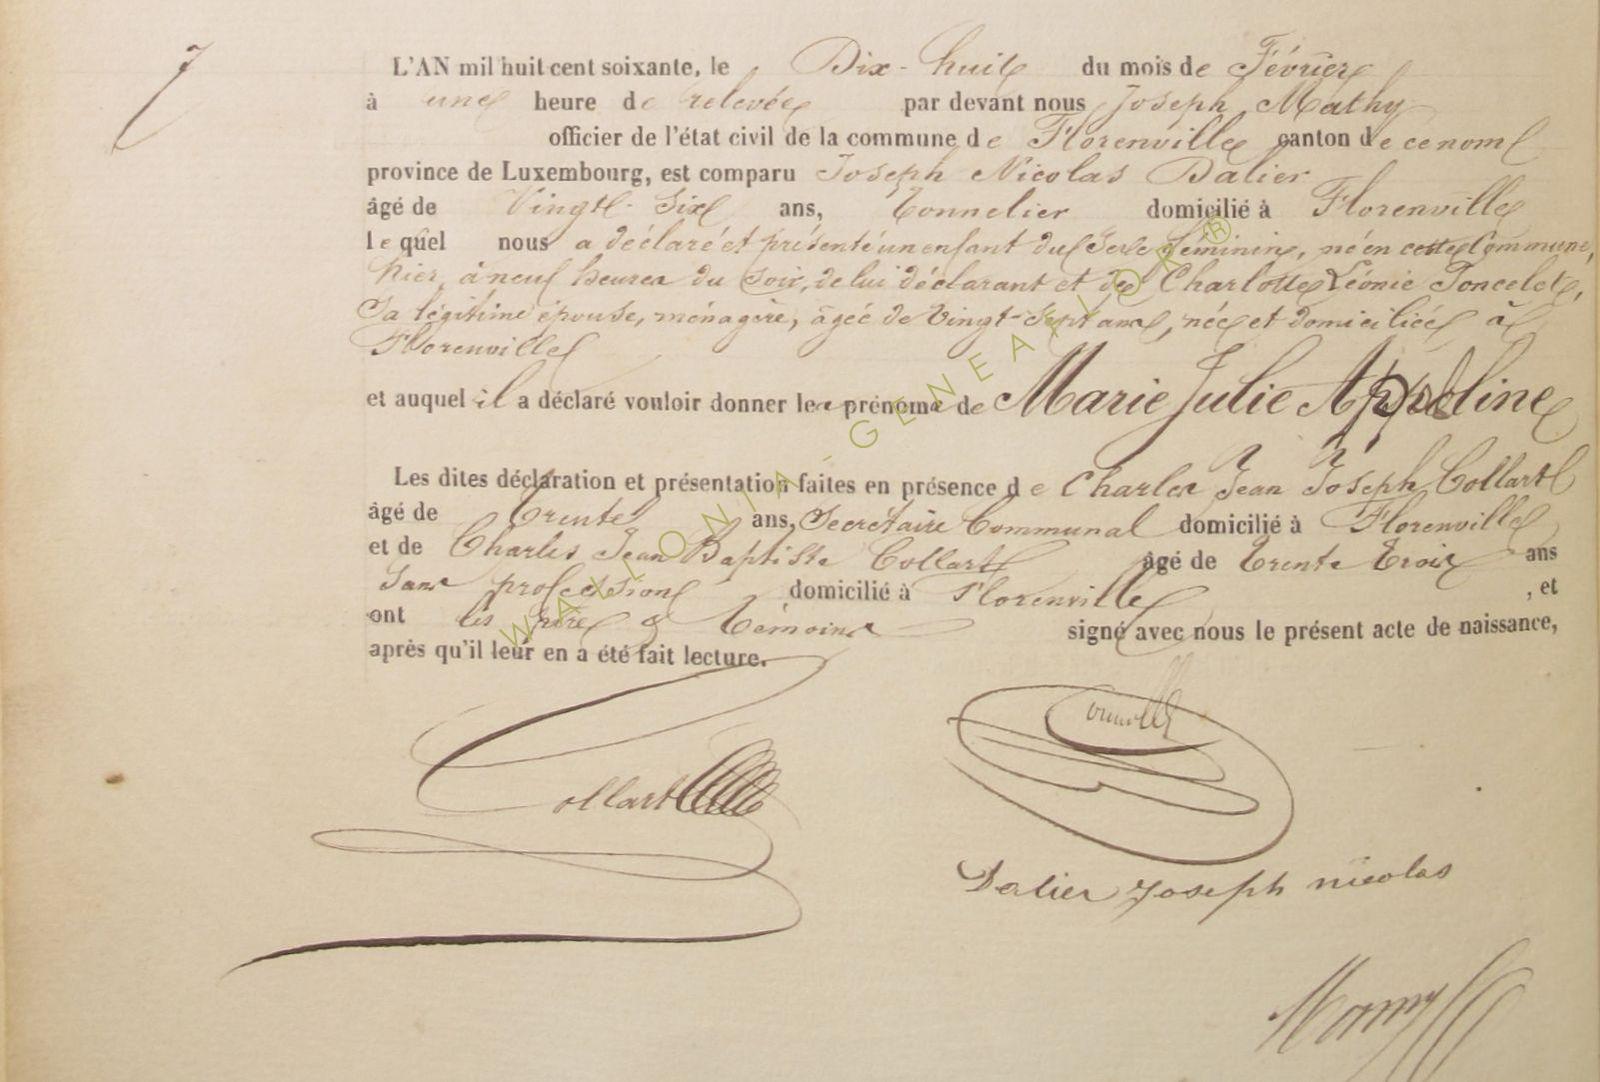 7
L'AN mil huit cent soixante, le Dix-huit du mois de Février
à une heure de relevée par devant nous Joseph Mathy
officier de l'état civil de la commune de Florenville canton de ce nom
province de Luxembourg, est comparu Joseph Nicolas Dalier
âgé de Vingt-Six ans, Tonnelier domicilié à Florenville
lequel nous a déclaré et présenté un enfant du Sexe féminin, né en cette Commune,
hier, à neuf heures du Soir, de lui déclarant et de Charlotte Léonie Poncelet,
Sa légitime épouse, ménagère, âgée de Vingt-Sept ans, née et domiciliée à
Florenville
et auquel il a déclaré vouloir donner les prénoms de Marie Julie Appoline
Les dites déclaration et présentation faites en présence de Charles Jean Joseph Collart
âgé de trente ans, Secrétaire Communal domicilié à Florenville
et de Charles Jean Baptiste Collart âgé de trente trois ans
Sans profession domicilié à Florenville, et
ont les père & témoins signé avec nous le présent acte de naissance,
après qu'il leur en a été fait lecture.
Collart
Dalier Joseph nicolas
WALLONIA-GENEALOR®